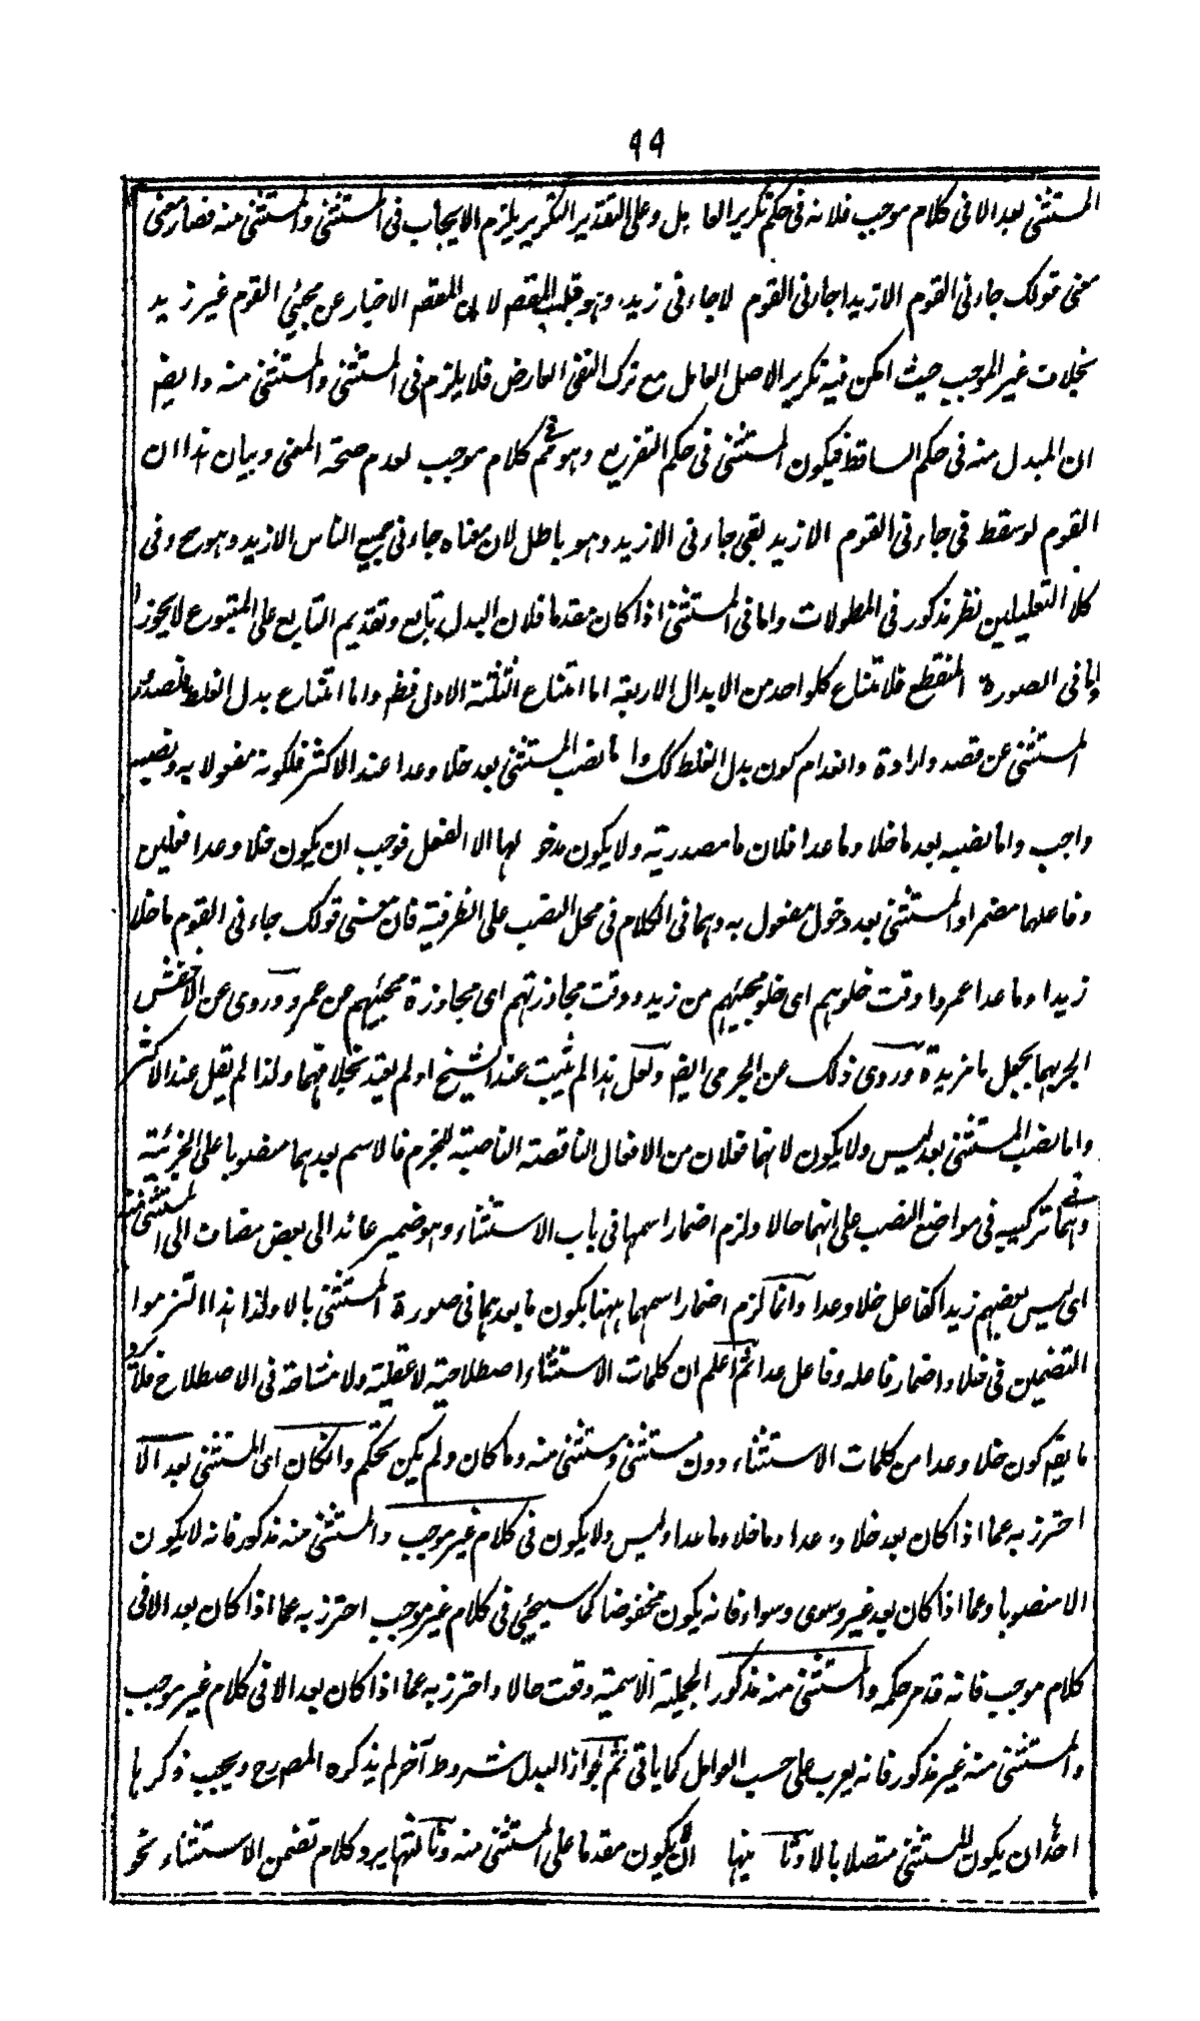 ٩٩
المستثنى بعد الا فى كلام موجب فلانه فى حكم تكرير العامل وعلى التقدير التكرير يلزم الايجاب فى المستثنى والمستثنى منه فصار معنى
معنى قولك جاءنى القوم الا زيدا جاءنى القوم لا جاءنى زيد وهو قلب المقصد لان المقصد الاخبار عن مجيئ القوم غير زيد
بخلاف غير الموجب حيث امكن فيه تكرير الاصل العامل مع ترك النفى العارض فلا يلزم فى المستثنى والمستثنى منه وايضا
ان المبدل منه فى حكم الساقط فيكون المستثنى فى حكم التفريع وهو فى كلام موجب لعدم صحة المعنى وبيان هذا ان
القوم لو سقط فى جاءنى القوم الا زيد بقى جاءنى الا زيد وهو باطل لان معناه جاءنى جميع الناس الا زيد وهو مح وفى
كلا التعليلين نظر مذكور فى المطولات واما فى المستثنى اذا كان مقدما فلان البدل تابع وتقديم التابع على المتبوع لا يجوز
واما فى الصورة المنقطع فلامتناع كلواحد من الابدال الاربعة اما امتناع الثلثة الاول فظ واما امتناع بدل الغلط فلصدور
المستثنى عن قصد وارادة وانعدام كون بدل الغلط كك واما نصب المستثنى بعد خلا وعدا عند الاكثر فلكونه مفعولا به ونصبه
واجب واما نصبه بعد ما خلا وما عدا فلان ما مصدرية ولا يكون مدخولها الا الفعل فوجب ان يكون خلا وعدا فعلين
وفاعلهما مضمرا والمستثنى بعد دخول مفعول به وهما فى الكلام فى محل النصب على الظرفية فان معنى قولك جاءنى القوم ما خلا
زيدا وما عدا عمروا وقت خلوهم اى خلو مجيئهم من زيد ووقت مجاوزتهم اى مجاوزة مجيئهم عن عمرو وروى عن الاخفش
الجر بهما بجعل ما مزيدة وروى ذلك عن الجرمى ايضا ولعل هذا لم يثبت عند الشيخ او لم يعتد بخلافهما ولذا لم يقل عند الاكثر
واما نصب المستثنى بعد ليس ولا يكون لانهما فعلان من الافعال الناقصة الناصبة للخبر فالاسم بعدهما منصوبا على الخبرية
وهما فى تركيبه فى مواضع النصب على انهما حالا ولزم اضمار اسمها فى باب الاستثناء وهو ضمير عائد الى بعض مضاف الى المستثنى منه
اى ليس بعضهم زيدا كفاعل خلا وعدا وانما لزم اضمار اسمهما ههنا بكون ما بعدهما فى صورة المستثنى بالا ولذا هذا التزموا
التضمين فى خلا واضمار فاعله وفاعل عدا ثم اعلم ان كلمات الاستثناء اصطلاحية لا عقلية ولا مشاحة فى الاصطلاح فلا يرد
ما يقم كون خلا وعدا من كلمات الاستثناء دون مستثنى ومستثنى منه وما كان ولم يكن تحكم وانكان اى المستثنى بعد الا
احترز به عما اذا كان بعد خلا وعدا وما خلا وما عدا وليس ولا يكون فى كلام غير موجب والمستثنى منه مذكور فانه لا يكون
الا منصوبا وعما اذا كان بعد غير وسوى وسواء فانه يكون مخفوضا كما سيجيئ فى كلام غير موجب احترز به عما اذا كان بعد الا فى
كلام موجب فانه قد مر حكمه والمستثنى منه مذكور الجملة الاسمية وقت حالا واحترز به عما اذا كان بعد الا فى كلام غير موجب
والمستثنى منه غير مذكور فانه يعرب على حسب العوامل كما يأتى ثم لجواز البدل شروط آخر لم يذكره المصرح ويجب ذكرها
احدها ان يكون المستثنى متصلا بالا وثانيها ان يكون مقدما على المستثنى منه وثالثها يرد كلام تضمن الاستثناء نحو